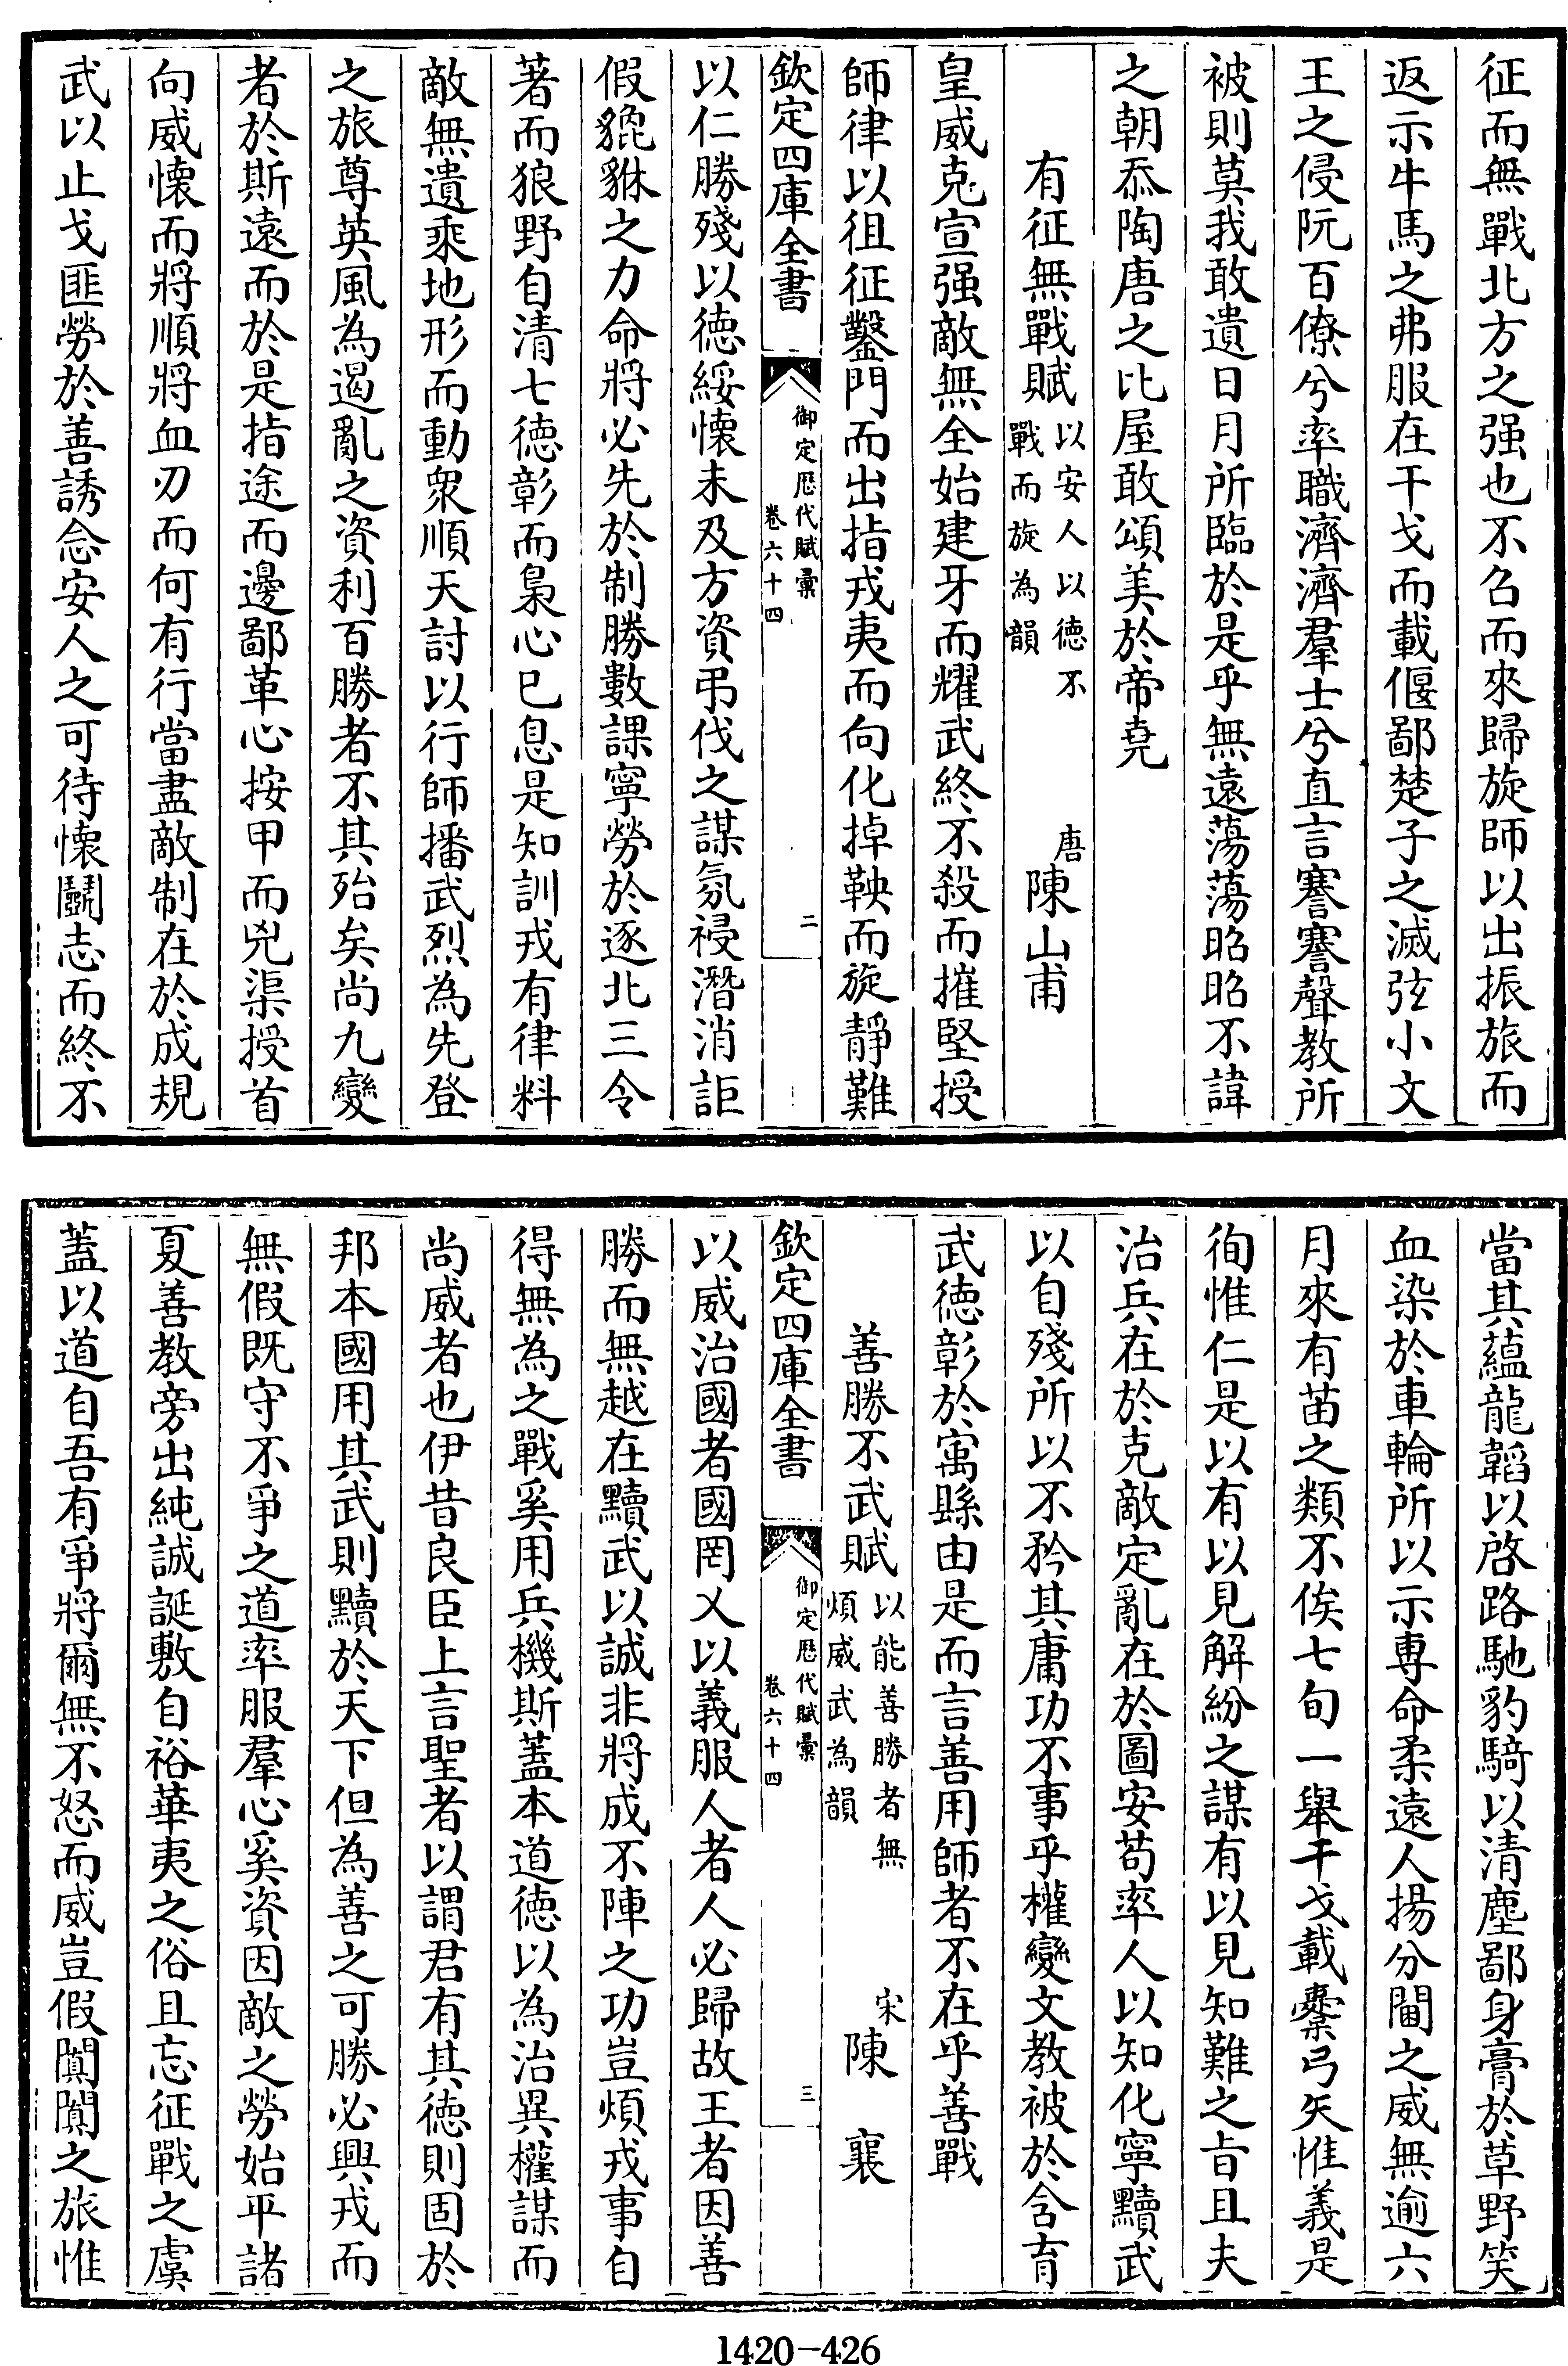 征而無戰北方之强也不召而來歸旋師以出振旅而
返示牛馬之弗服在干戈而載偃鄙楚子之滅弦小文
王之侵阮百僚兮率職濟濟羣士兮直言謇謇聲教所
被則莫我敢遺日月所臨於是乎無遠蕩蕩昭昭不諱
之朝忝陶唐之比屋敢頌美於帝堯
有征無戰賦
以安人以徳不
戰而旋為韻
唐
陳山甫
皇威克宣强敵無全始建牙而耀武終不殺而摧堅授
師律以徂征鑿門而出指戎夷而向化掉鞅而旋靜難
欽定四庫全書
御定歷代賦彙
卷六十四
二
以仁勝殘以徳綏懐未及方資弔伐之謀氛祲潛消詎
假貔貅之力命將必先於制勝數課寧勞於逐北三令
著而狼野自清七徳彰而梟心已息是知訓戎有律料
敵無遺乘地形而動衆順天討以行師播武烈為先登
之旅尊英風為遏亂之資利百勝者不其殆矣尚九變
者於斯遠而於是指途而邊鄙革心按甲而兇渠授首
向威懐而將順將血刃而何有行當盡敵制在於成規
武以止戈匪勞於善誘念安人之可待懐鬭志而終不
當其蘊龍韜以啓路馳豹騎以清塵鄙身膏於草野笑
血染於車輪所以示専命柔逺人揚分閫之威無逾六
月來有苗之類不俟七旬一舉干戈載櫜弓矢惟義是
徇惟仁是以有以見解紛之謀有以見知難之旨且夫
治兵在於克敵定亂在於圖安苟率人以知化寧黷武
以自殘所以不矜其庸功不事乎權變文教被於含育
武徳彰於寓縣由是而言善用師者不在乎善戰
善勝不武賦
以能善勝者無
煩威武為韻
宋
陳　襄
欽定四庫全書
御定歷代賦彙
卷六十四
三
以威治國者國罔乂以義服人者人必歸故王者因善
勝而無越在黷武以誠非將成不陣之功豈煩戎事自
得無為之戰奚用兵機斯蓋本道徳以為治異權謀而
尚威者也伊昔良臣上言聖者以謂君有其徳則固於
邦本國用其武則黷於天下但為善之可勝必興戎而
無假既守不爭之道率服羣心奚資因敵之勞始平諸
夏善教旁出純誠誕敷自裕華夷之俗且忘征戰之虞
蓋以道自吾有爭將爾無不怒而威豈假闐闐之旅惟
1420-426